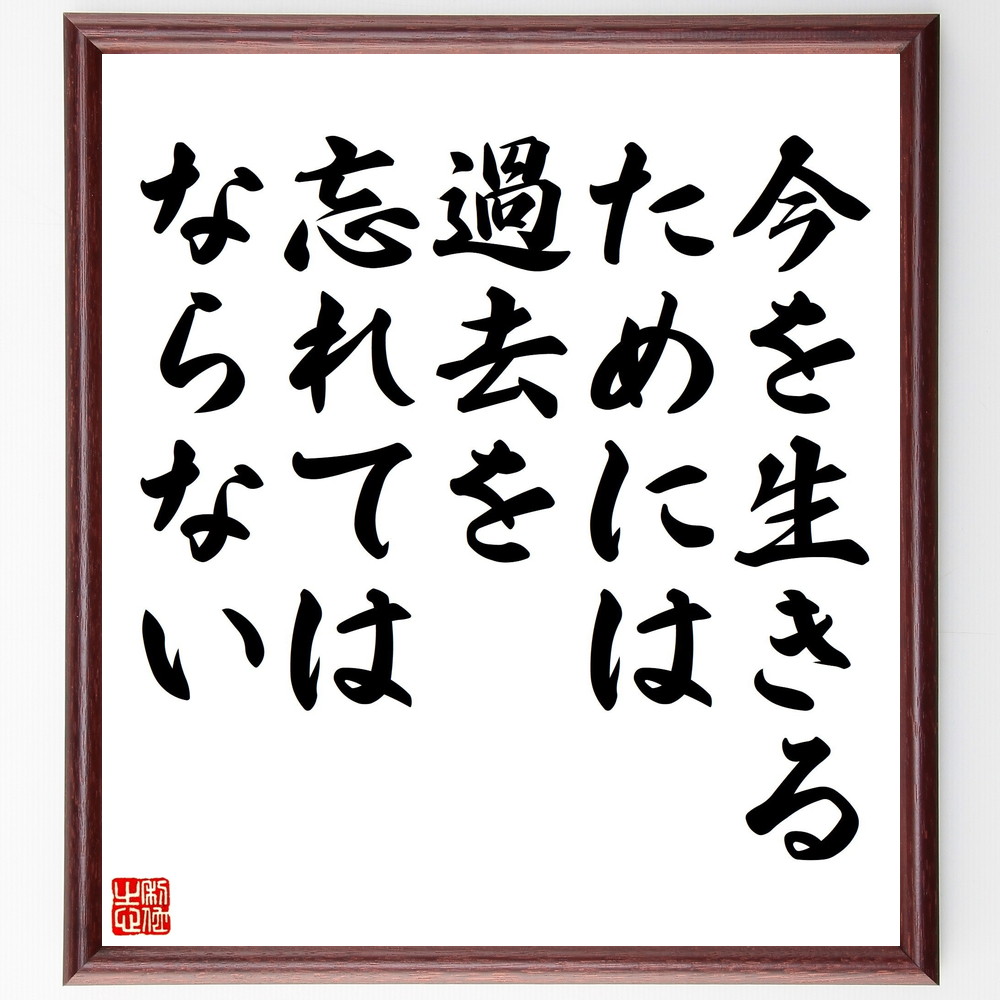 今を生きる
ためには
過去を
忘れては
ならない